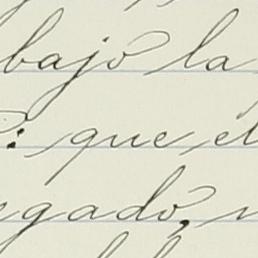 bajo la
: que el
gado,